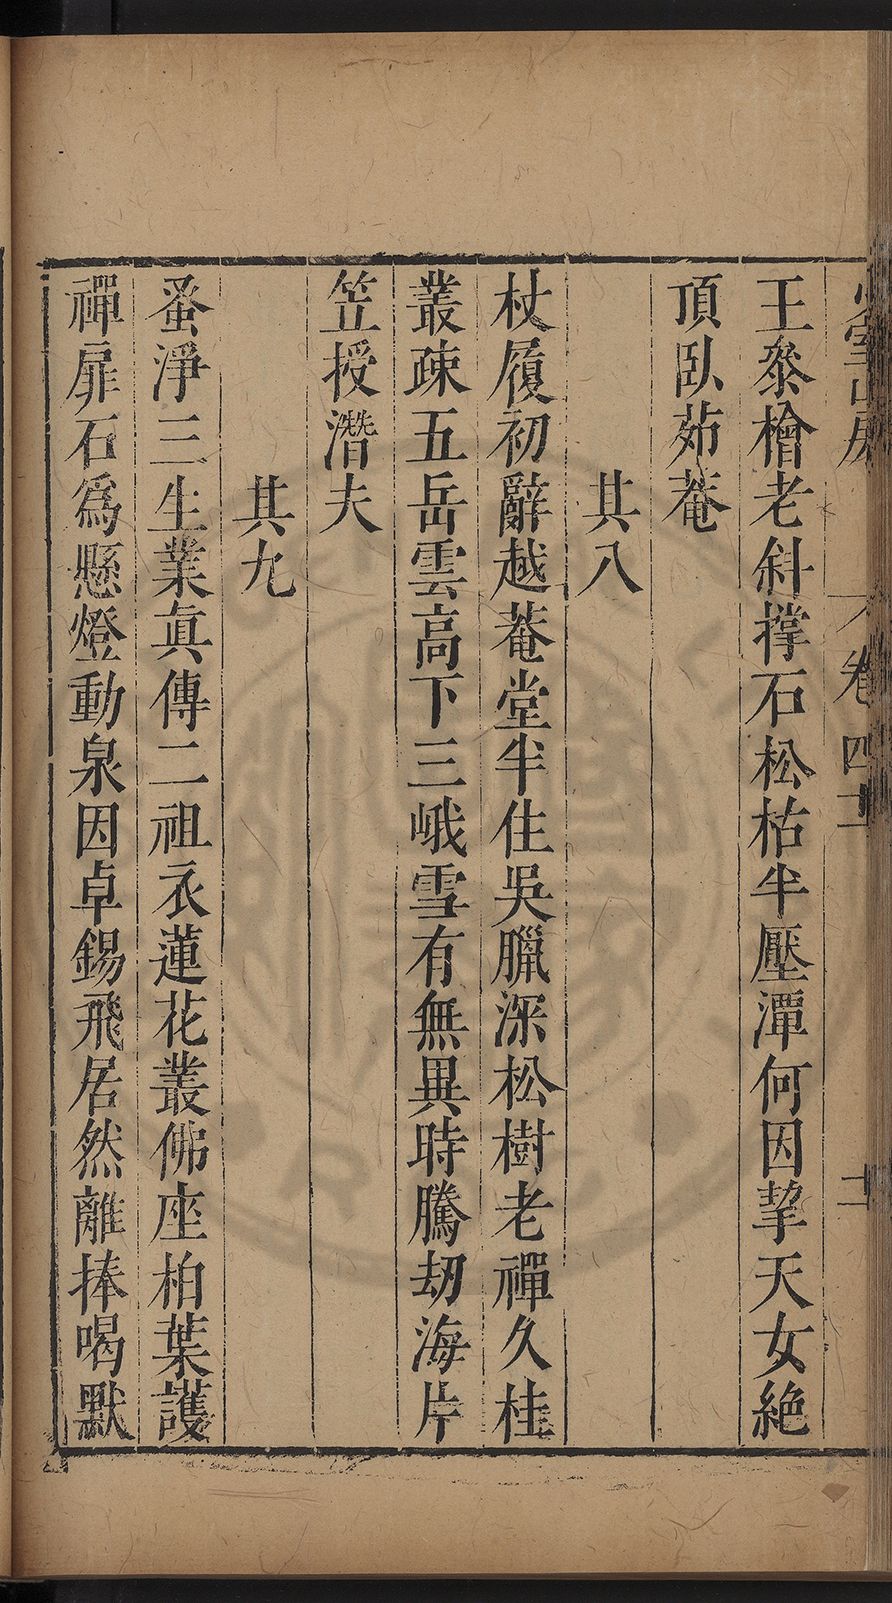 王參檜老斜撐石松枯半壓潭何因挈天女絕
頂臥茆菴
其八
杖履初辭越菴堂半住吳臘深松樹老禪久桂
叢疎五岳雲高下三峨雪有無異時騰劫海片
笠授潛夫
其九
蚤淨三生業眞傳二祖衣蓮花叢佛座柏葉護
禪扉石爲懸燈動泉因卓錫飛居然離捧喝默